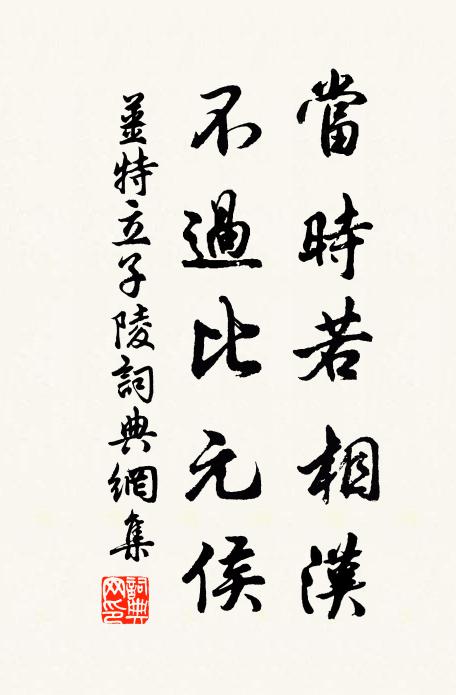 當時若相漢
不過比元侯
姜特立子陵詞典網集
詞典网印